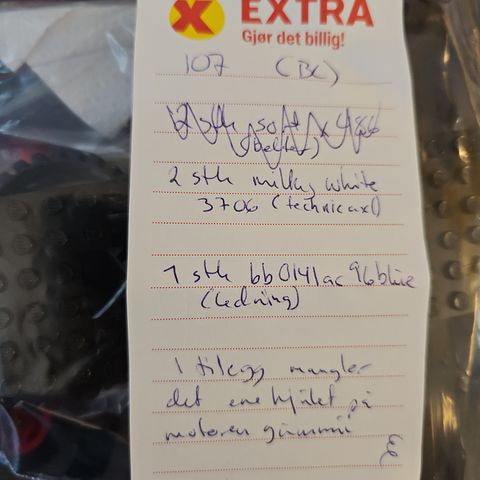 EXTRA
Gjør det billig!
107 (BL)
2 stk soft x 4166
2 stk milky white
3706 (technic axl)
1 stk bb0141ac96blue
(ledning)
I tillegg mangler
det ene hjulet på
motoren gummi